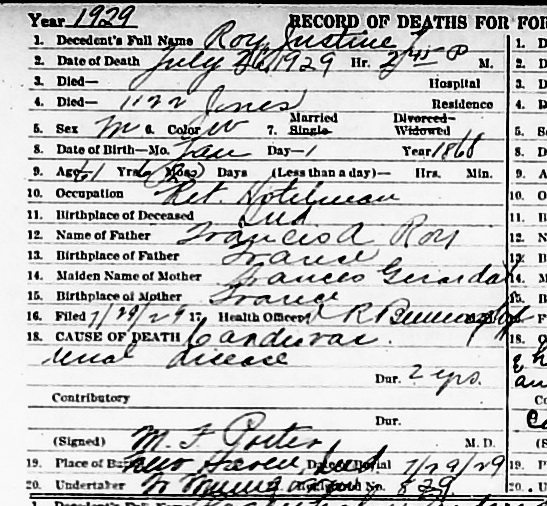 Year 1929 RECORD OF DEATHS FOR FOR
1. Decedent's Full Name Roy, Justine
2. Date of Death July 26, 1929 Hr. 2/45 P M.
3. Died— Hospital
4. Died— 1122 Jones Residence
5. Sex M 6. Color W 7. Married Single Divorced Widowed
8. Date of Birth—Mo. Jan Day—1 Year 1868
9. Age 61 Yrs 6 Mos Days (Less than a day)— Hrs. Min.
10. Occupation Ret. Hotelman
11. Birthplace of Deceased Ind
12. Name of Father Francis A Roy
13. Birthplace of Father France
14. Maiden Name of Mother Frances Gerardot
15. Birthplace of Mother France
16. Filed 7/29/29 17. Health Officer
18. CAUSE OF DEATH Cardiovas.
renal disease
Dur. 2 yrs.
Contributory
Dur.
(Signed) M. F. Porter M. D.
19. Place of Burial New Haven, Ind Date of Burial 7/29/29
20. Undertaker No. 829